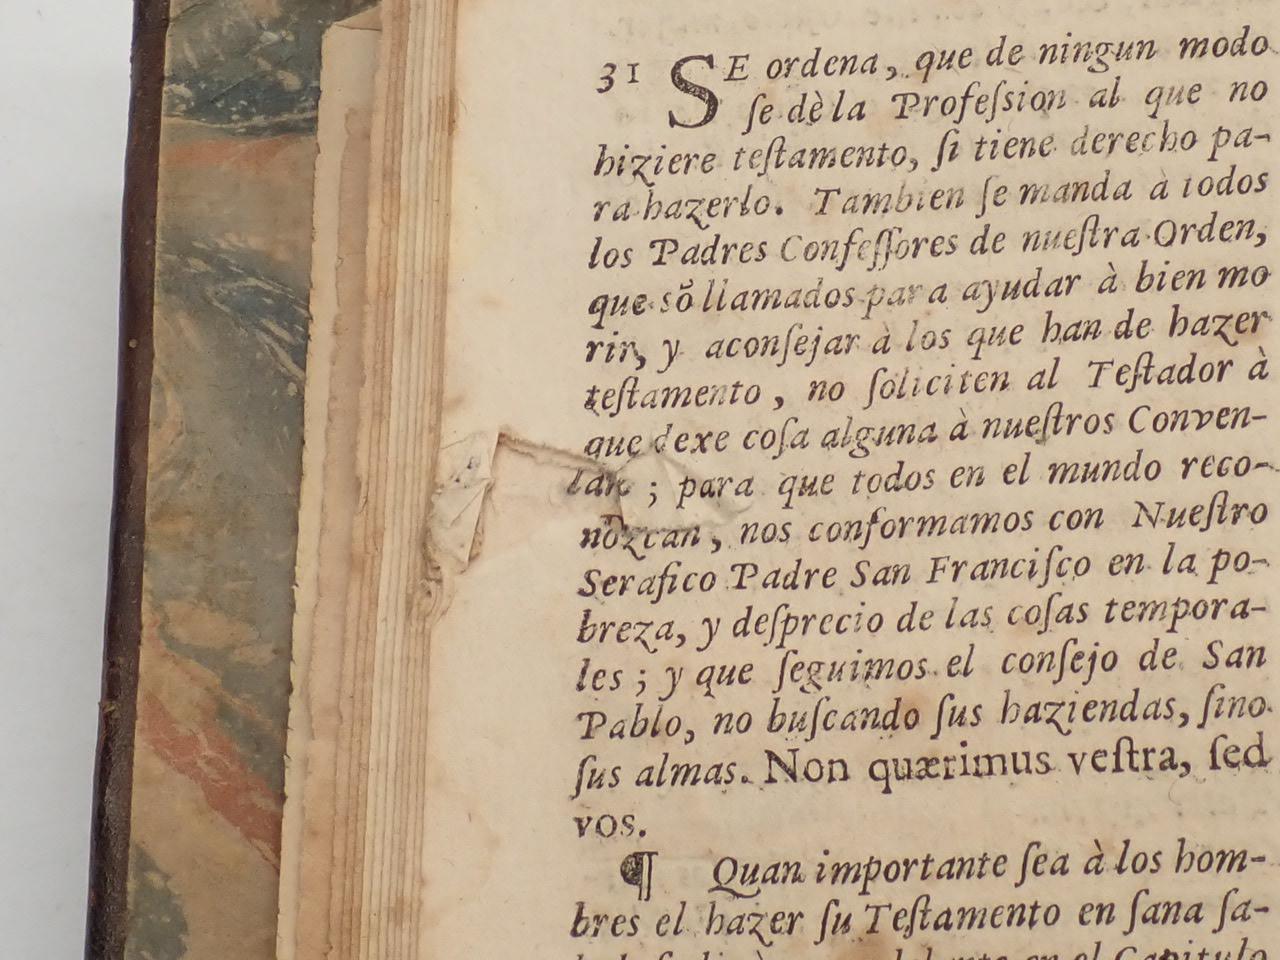 31 SE ordena, que de ningun modo
ſe dè la Profeſsion al que no
hiziere teſtamento, ſi tiene derecho pa-
ra hazerlo. Tambien ſe manda à todos
los Padres Confeſſores de nueſtra Orden,
que sõ llamados para ayudar à bien mo
rir, y aconſejar à los que han de hazer
teſtamento, no ſoliciten al Teſtador à
que dexe coſa alguna à nueſtros Conven-
; para que todos en el mundo reco-
nozcan, nos conformamos con Nueſtro
Serafico Padre San Franciſco en la po-
breza, y deſprecio de las coſas tempora-
les; y que ſeguimos el conſejo de San
Pablo, no buſcando ſus haziendas, ſino
ſus almas. Non quærimus veſtra, ſed
vos.
¶ Quan importante ſea à los hom-
bres el hazer ſu Teſtamento en ſana ſa-
en el Capitulo